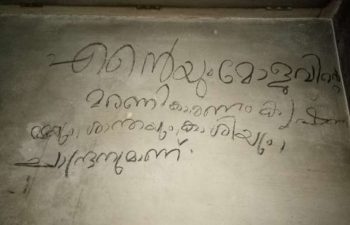 എൻ്റെയും മോളുവിൻ്റെ
മരണ കാരണം കൃഷ്ണ
ശാന്തയും, കാശിയും,
ചന്ദ്രനുമാണ്.